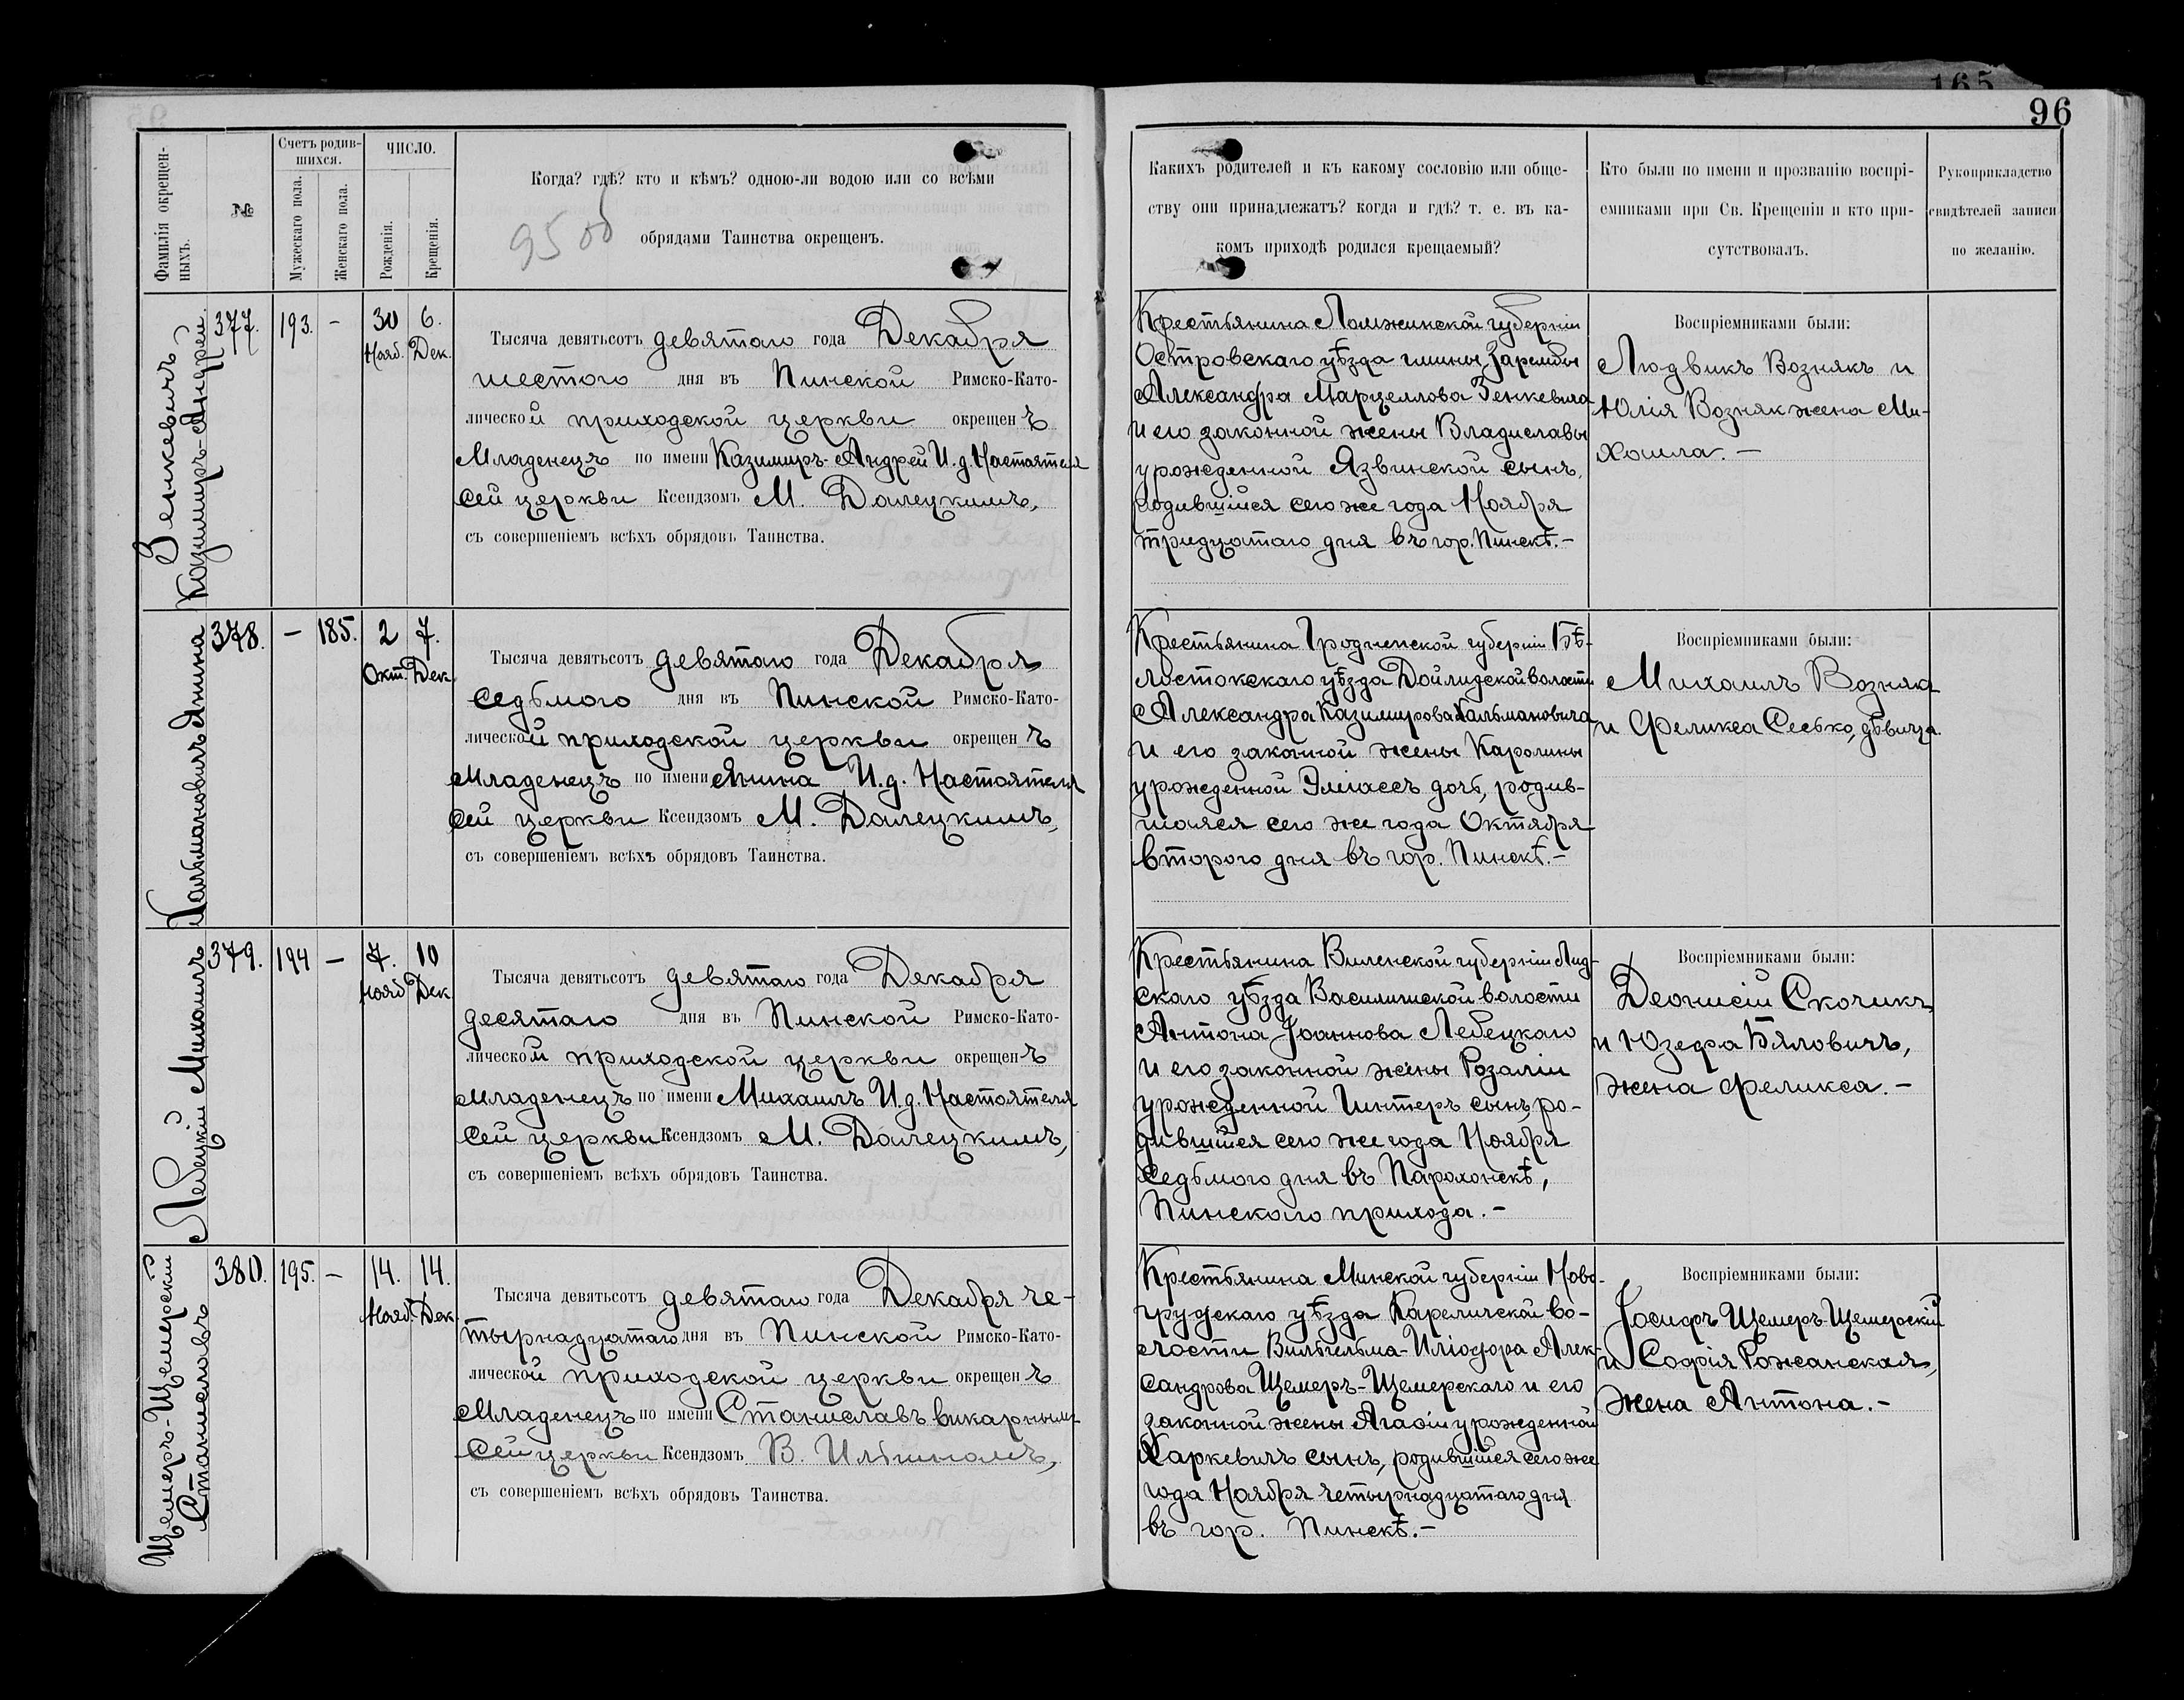 165
96
Фамилія окрещен-
ныхъ.
№
Счетъ родив-
шихся.
Мужескаго пола.
Женскаго пола.
ЧИСЛО.
Рожденія.
Крещенія.
Когда? гдѣ? кто и кѣмъ? одною-ли водою или со всѣми
обрядами Таинства окрещенъ.
95 об
Какихъ родителей и къ какому сословію или обще-
ству они принадлежатъ? когда и гдѣ? т. е. въ ка-
комъ приходѣ родился крещаемый?
Кто были по имени и прозванію воспрі-
емниками при Св. Крещеніи и кто при-
сутствовалъ.
Рукоприкладство
свидѣтелей записи
по желанію.
Зенкевичъ
Казимиръ-Андрей
377.
193.
-
30
Нояб.
6.
Дек.
Тысяча девятьсотъ девятаго года Декабря
шестого дня въ Пинской Римско-Като-
лической приходской церкви окрещенъ
Младенецъ по имени Казимиръ-Андрей И.д. Настоятеля
сей церкви Ксендзомъ М. Далецкимъ,
съ совершеніемъ всѣхъ обрядовъ Таинства.
Крестьянина Ломжинской губерніи
Островскаго уѣзда гмины Зарембы
Александра Марцеллова Зенкевича
и его законной жены Владиславы
урожденной Язвинской сынъ,
родившійся сего же года Ноября
тридцатаго дня въ гор. Пинскѣ.-
Воспріемниками были:
Людвикъ Вознякъ и
Юлія Возняк жена Ми-
хаила.-
Кальмановичъ Янина
378.
-
185.
2
Окт.
7.
Дек.
Тысяча девятьсотъ девятаго года Декабря
седьмого дня въ Пинской Римско-Като-
лической приходской церкви окрещенъ
Младенецъ по имени Янина И.д. Настоятеля
сей церкви Ксендзомъ М. Далецкимъ,
съ совершеніемъ всѣхъ обрядовъ Таинства.
Крестьянина Гродненской губерніи Бѣ-
лостокскаго уѣзда Дойлидской волости
Александра Казимирова Кальмановича
и его законной жены Каролины
урожденной Эліассъ дочь, родив-
шаяся сего же года Октября
второго дня въ гор. Пинскѣ.-
Воспріемниками были:
Михаилъ Вознякъ
и Феликса Сесько, дѣвица.
Лебецкій Михаилъ
379.
194
-
7.
Нояб.
10
Дек.
Тысяча девятьсотъ девятаго года Декабря
десятаго дня въ Пинской Римско-Като-
лической приходской церкви окрещенъ
Младенецъ по имени Михаилъ И.д. Настоятеля
сей церкви Ксендзомъ М. Далецкимъ,
съ совершеніемъ всѣхъ обрядовъ Таинства.
Крестьянина Виленской губерніи Лид-
скаго уѣзда Василишской волости
Антона Іоаннова Лебецкаго
и его законной жены Розаліи
урожденной Гинтеръ сынъ, ро-
дившійся сего же года Ноября
седьмого дня въ Парохонскѣ,
Пинскаго прихода.-
Воспріемниками были:
Деонисій Скочикъ
и Юзефа Бяловичъ,
жена Феликса.-
Щемеръ-Щемерскій
Станиславъ
380.
195.
-
14.
Нояб.
14.
Дек.
Тысяча девятьсотъ девятаго года Декабря че-
тырнадцатаго дня въ Пинской Римско-Като-
лической приходской церкви окрещенъ
Младенецъ по имени Станиславъ викарнымъ
сей церкви Ксендзомъ В. Ильгиномъ,
съ совершеніемъ всѣхъ обрядовъ Таинства.
Крестьянина Минской губерніи Ново-
грудскаго уѣзда Кареличской во-
лости Вильгельма-Иліодора Алек-
сандрова Щемеръ-Щемерскаго и его
законной жены Агаѳіи урожденной
Харкевичъ сынъ, родившійся сего же
года Ноября четырнадцатаго дня
въ гор. Пинскѣ.-
Воспріемниками были:
Іосифъ Щемеръ-Щемерскій
и Софія Рожанская,
жена Антона.-